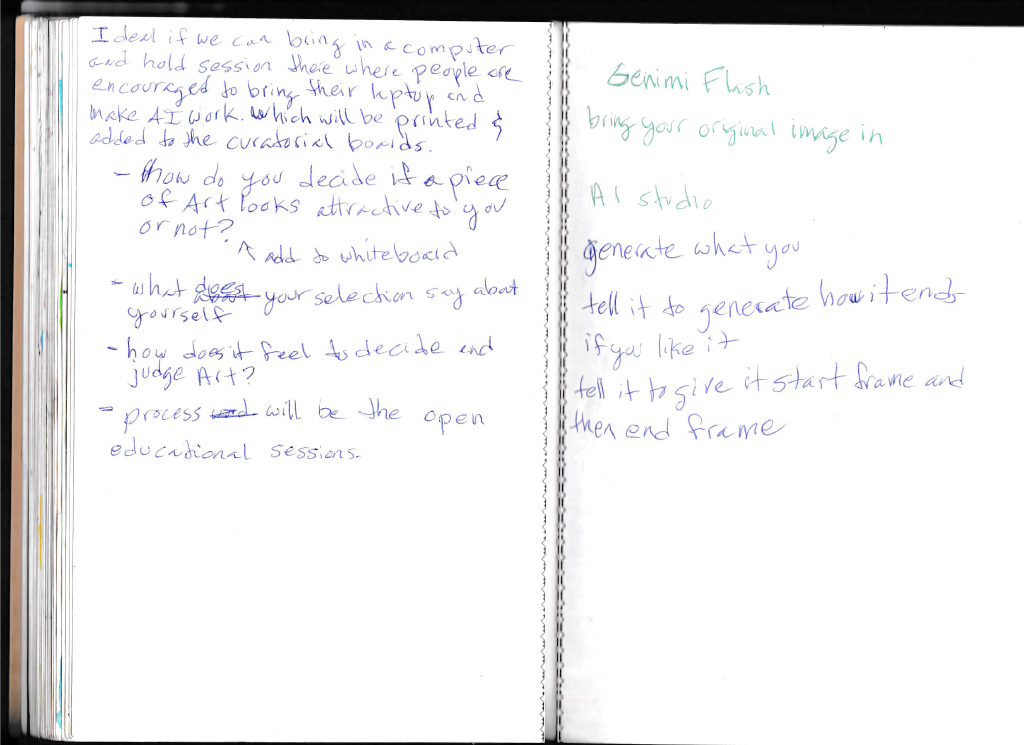 Ideal if we can bring in a computer
and hold session there where people are
encouraged to bring their laptop and
make AI work. Which will be printed &
added to the curatorial boards.
- how do you decide if a piece
of Art looks attractive to you
or not?
↑ add to whiteboard
- what does your selection say about
yourself
- how does it feel to decide and
judge Art?
- process will be the open
educational sessions.
Genimi Flash
bring your original image in
AI studio
generate what you
tell it to generate how it ends
if you like it
tell it to give it start frame and
then end frame